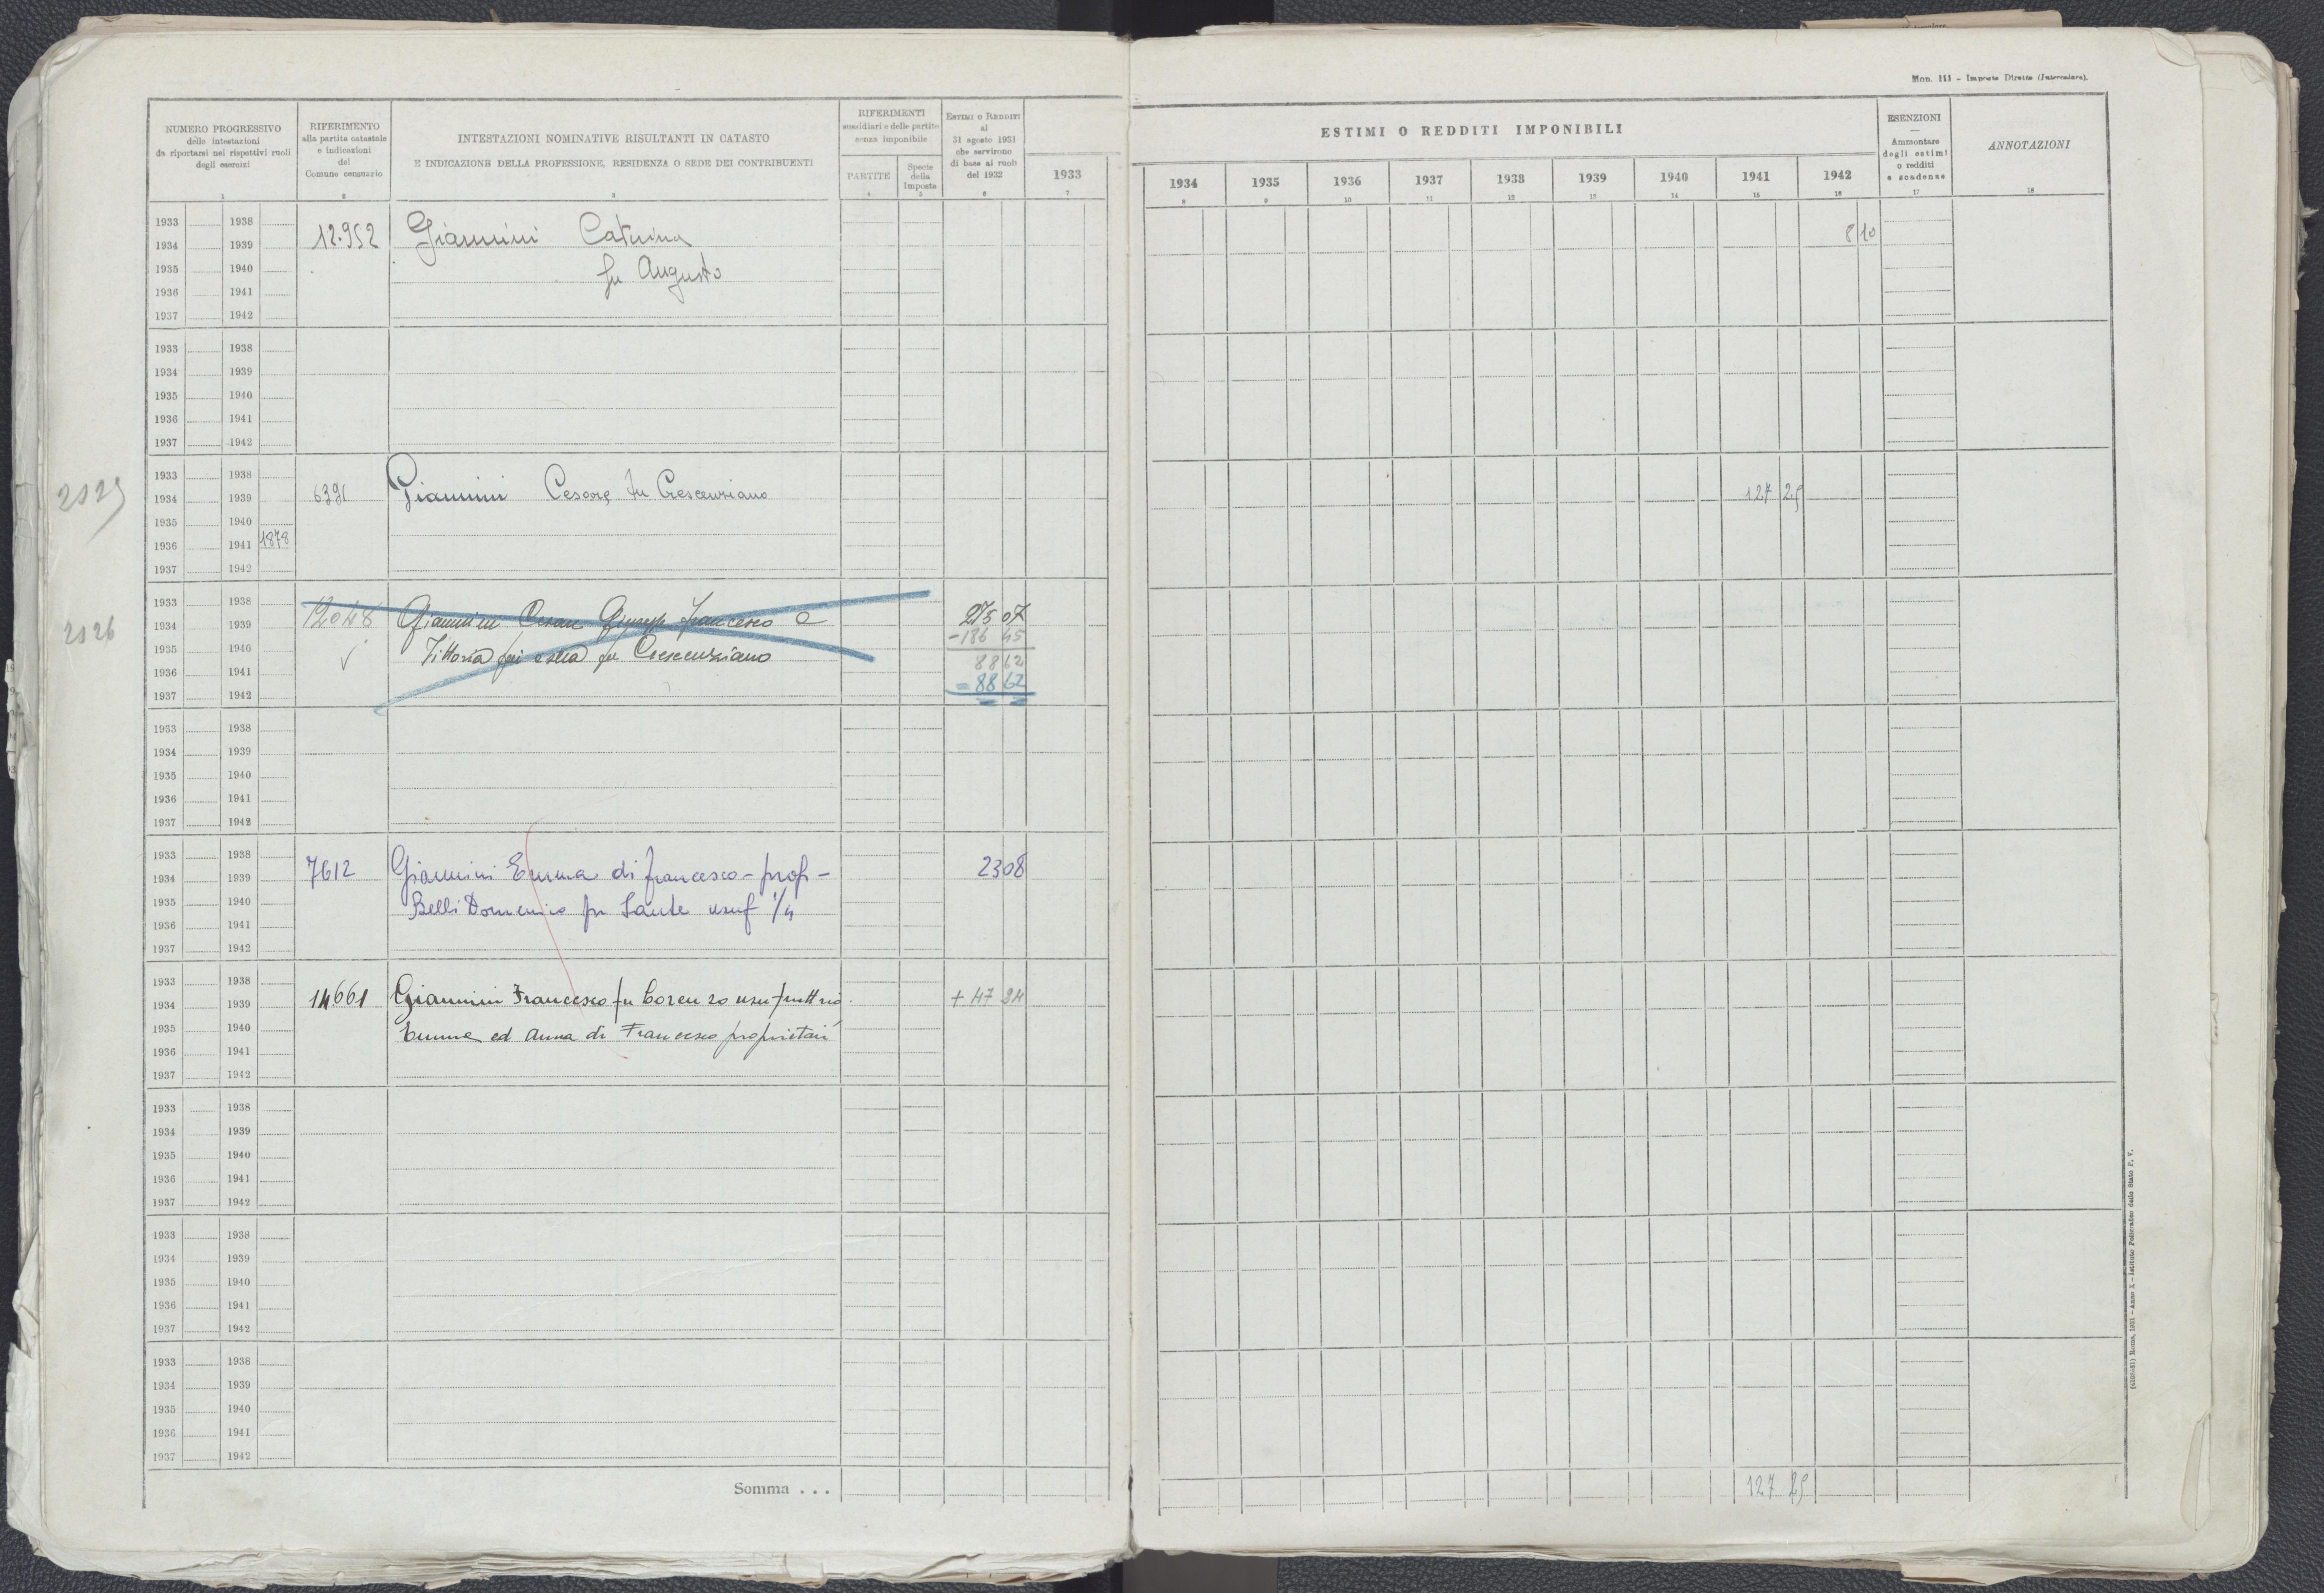 Mod. 111 - Imposte Dirette (Intercalare).
NUMERO PROGRESSIVO
delle intestazioni
da riportarsi nei rispettivi ruoli
degli esercizi
1
RIFERIMENTO
alla partita catastale
e indicazioni
del
Comune censuario
2
INTESTAZIONI NOMINATIVE RISULTANTI IN CATASTO
E INDICAZIONE DELLA PROFESSIONE, RESIDENZA O SEDE DEI CONTRIBUENTI
3
RIFERIMENTI
sussidiari e delle partite
senza imponibile
PARTITE
4
Specie
della
Imposta
5
ESTIMI O REDDITI
al
31 agosto 1931
che servirono
di base ai ruoli
del 1932
6
1933
7
ESTIMI O REDDITI IMPONIBILI
1934 1935 1936 1937 1938 1939 1940 1941 1942
8 9 10 11 12 13 14 15 16
ESENZIONI
Ammontare
degli estimi
o redditi
e scadenze
17
ANNOTAZIONI
18
1933 1938
1934 1939 12.952 Giannini Caterina 8 10
1935 1940 fu Augusto
1936 1941
1937 1942
1933 1938
1934 1939
1935 1940
1936 1941
1937 1942
1933 1938
2025 1934 1939 6391 Giannini Cesare fu Crescenziano 127 25
1935 1940
1936 1941 1878
1937 1942
1933 1938
2026 1934 1939 12048 Giannini Cesare Giuseppe Francesco e 275 07
1935 1940 Vittoria fu Crescenziano -186 45
1936 1941 88 62
1937 1942 = 88 62
1933 1938
1934 1939
1935 1940
1936 1941
1937 1942
1933 1938
1934 1939 7612 Giannini Emma di Francesco - prop - 23 08
1935 1940 Belli Domenico fu Sante usuf 1/4
1936 1941
1937 1942
1933 1938
1934 1939 14661 Giannini Francesco fu Lorenzo usufruttrio + 47 94
1935 1940 Emma ed Anna di Francesco proprietari
1936 1941
1937 1942
1933 1938
1934 1939
1935 1940
1936 1941
1937 1942
1933 1938
1934 1939
1935 1940
1936 1941
1937 1942
1933 1938
1934 1939
1935 1940
1936 1941
1937 1942
Somma . . . 127 25
Roma, 1931 - Anno X - Istituto Poligrafico dello Stato P. V.